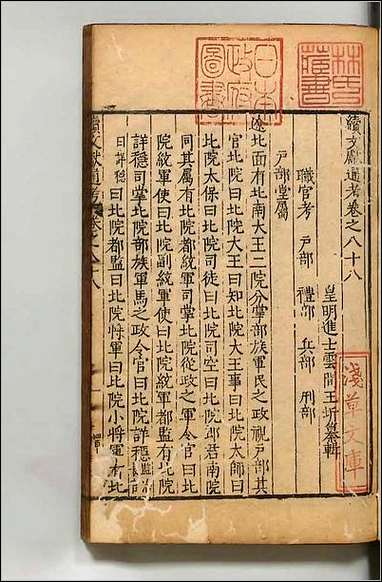 續文獻通考卷之八十八
皇明進士雲間王圻纂輯
職官考 戶部 禮部 兵部 刑部
戶部堂屬
遼北面有北南大王二院分掌部族軍民之政視戶部其
官北院曰北院大王曰知北院大王事曰北院太師曰
北院太保曰北院司徒曰北院司空曰北院郎君南院
同其屬有北院都統軍司掌北院從政之軍令官曰北
院統軍使曰北院副統軍使曰北院統軍都監有北院
詳穩司掌北院部族軍馬之政令官曰北院詳穩
曰北院都監曰北院將軍曰北院小將軍有北
林氏藏書
日本政府圖書
淺草文庫
續文獻通考 卷之八十八